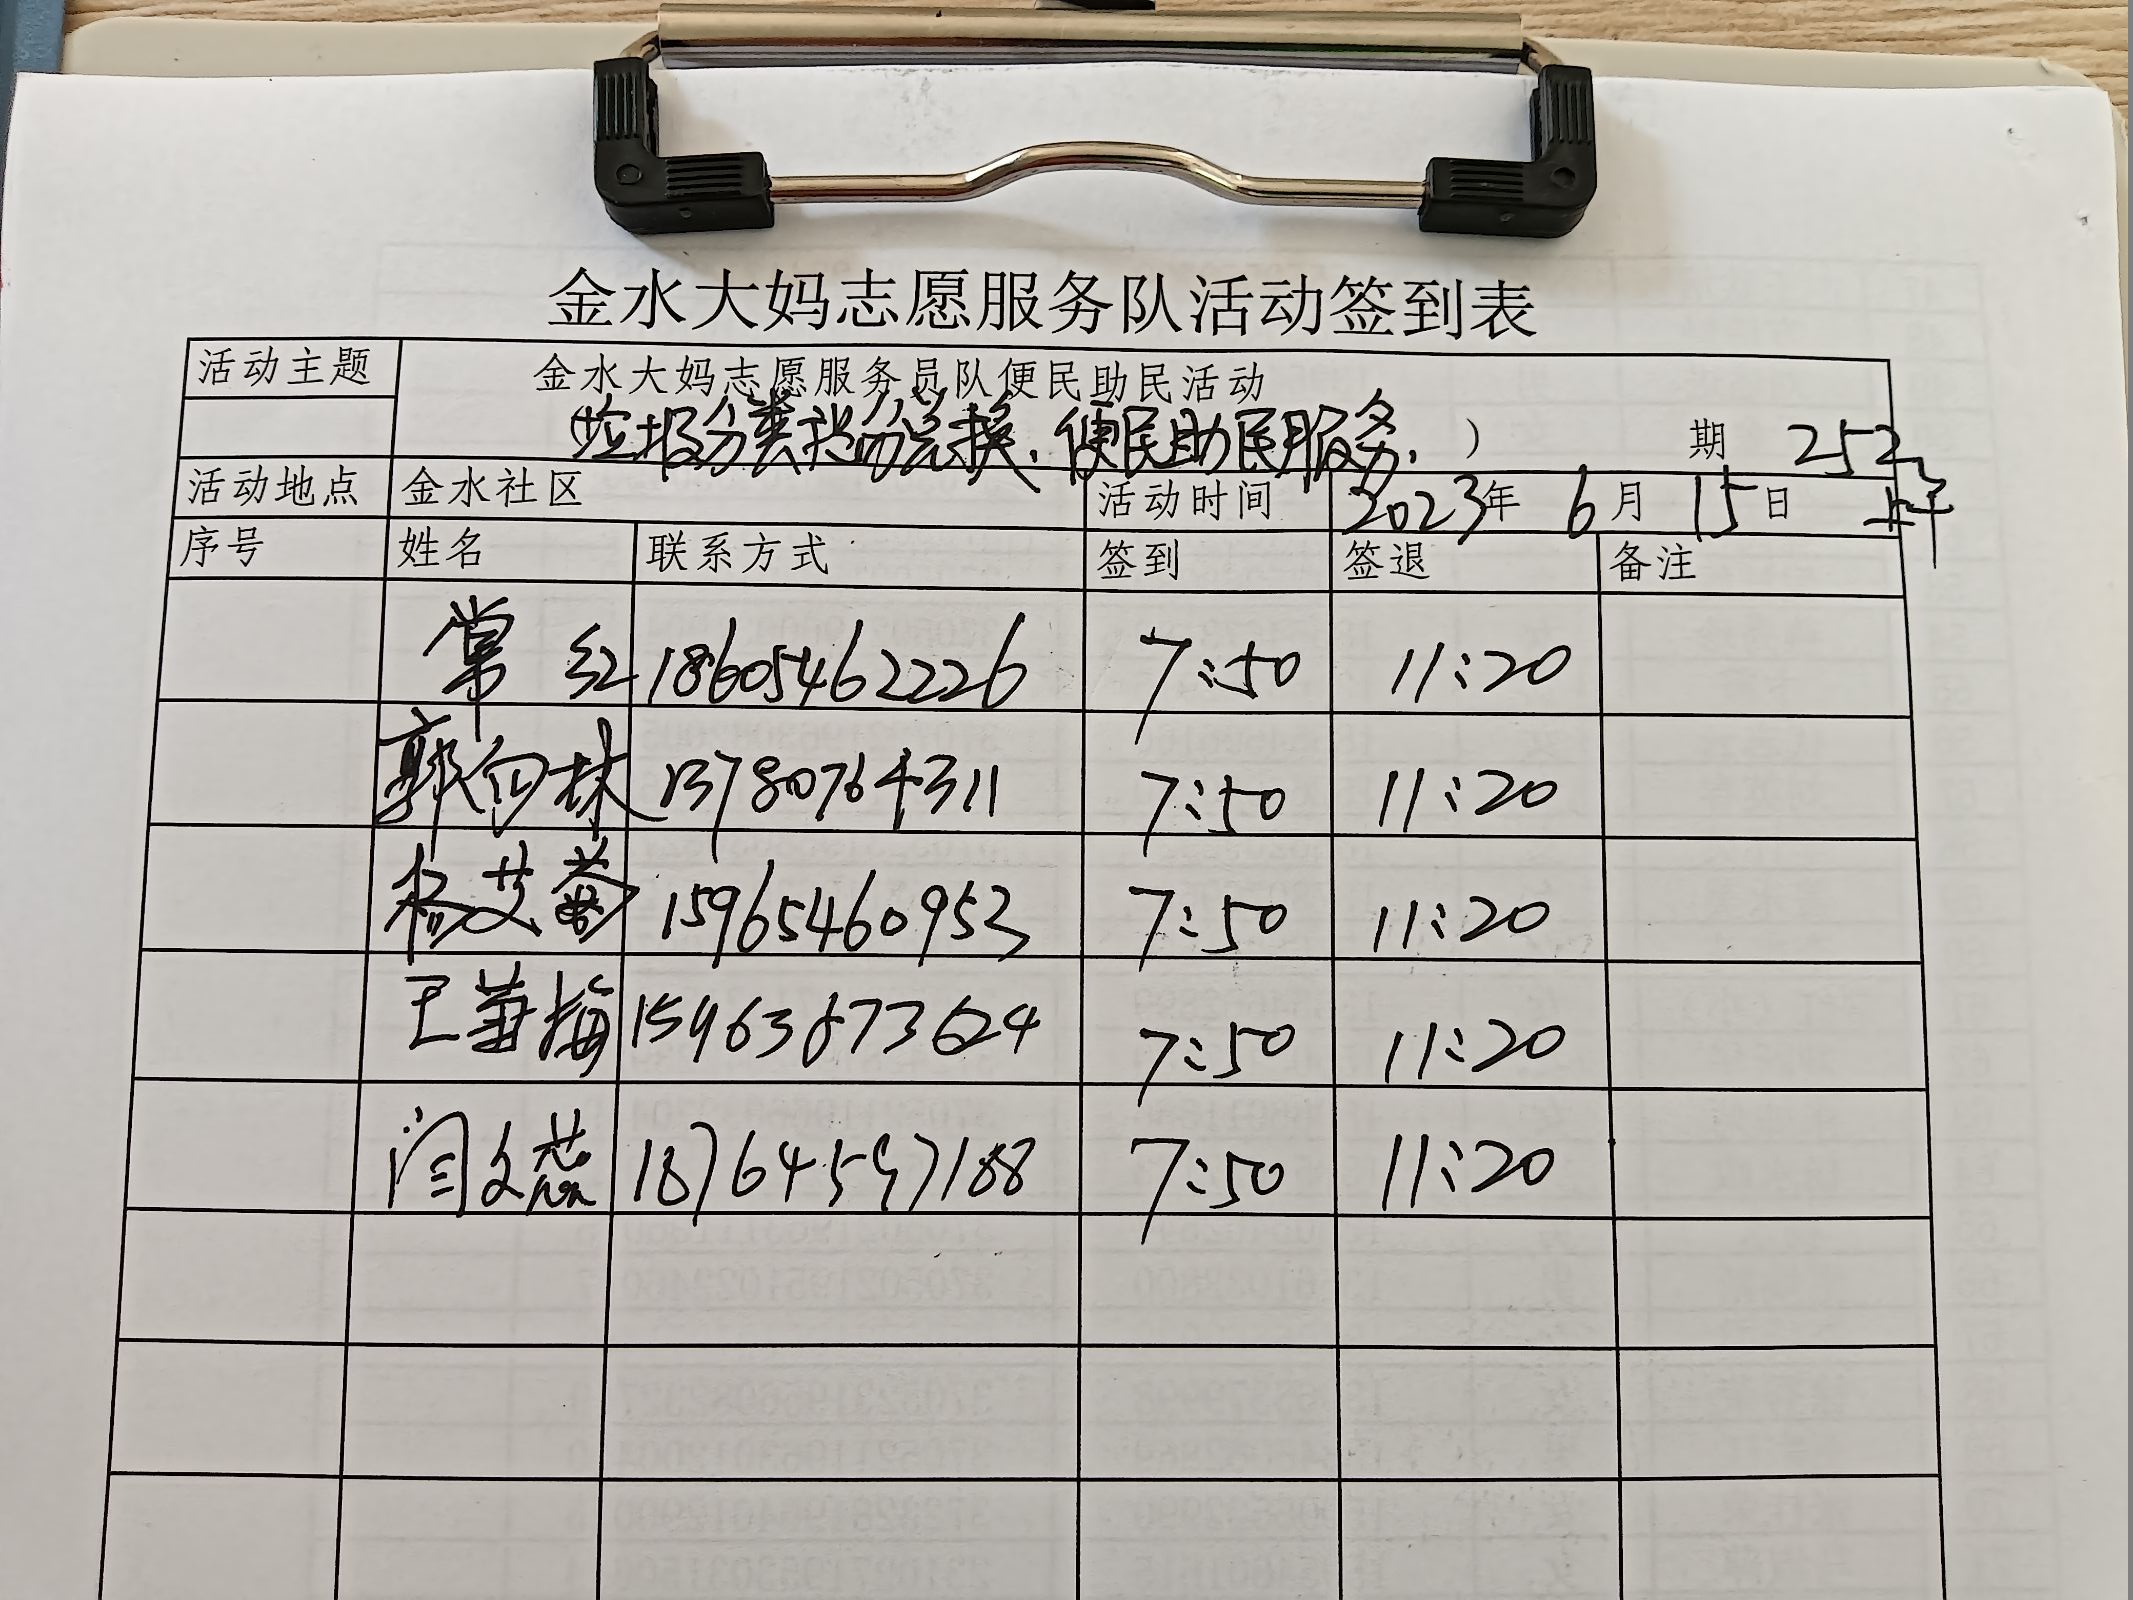 金水大妈志愿服务队活动签到表
活动主题 金水大妈志愿服务员队便民助民活动
垃圾分类积分兑换、便民助民服务, ) 期 252
活动地点 金水社区 活动时间 2023年 6月 15日 上午
序号 姓名 联系方式 签到 签退 备注
常红 18605462226 7:50 11:20
郭向林 13780764311 7:50 11:20
杨艾菊 15965460953 7:50 11:20
王 梅 15963673624 7:50 11:20
闫文蕊 18764597188 7:50 11:20